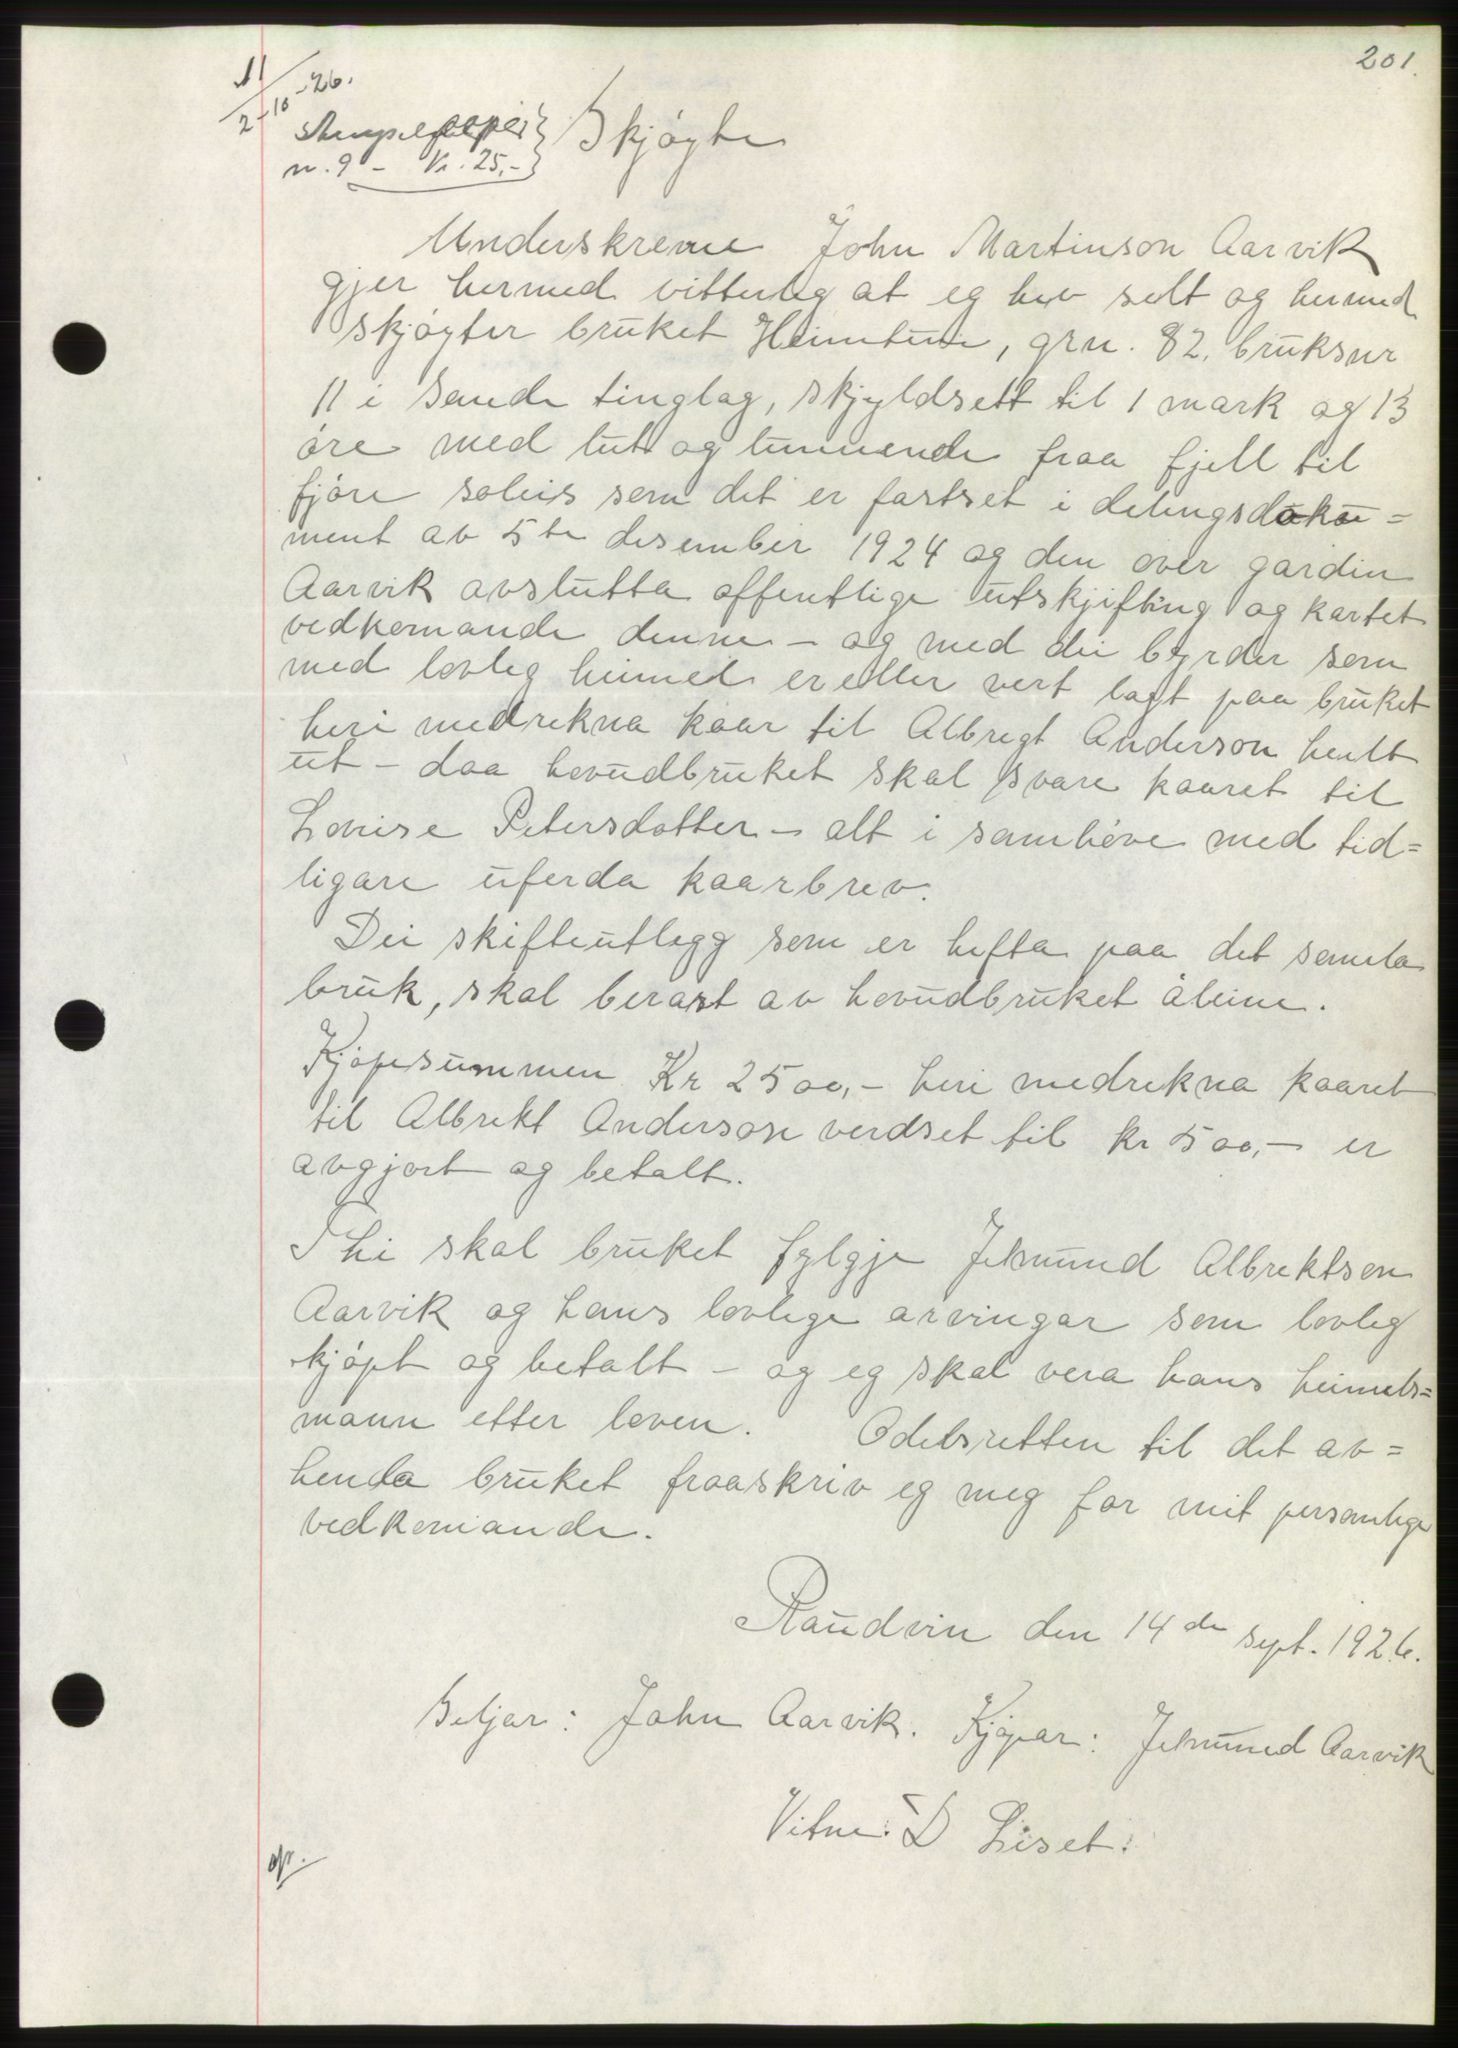 201.
11/2-10-26.
Stempelpapir
n. 9 - Kr. 25,-
Skjøyte
Underskrevne John Martinson Aarvik
gjer hermed vitterleg at eg hev selt og hermed
skjøyter bruket Heimtun, grn. 82, bruksnr
11 i Sande tinglag, skyldsett til 1 mark og 13
øre med lut og lunnende fraa fjell til
fjøre soleis som det er fastset i delingsdoku=
ment av 5te desember 1924 og den over garden
Aarvik avslutta offentlige utskjifting og kartet
vedkomande denne - og med dei byrder som
med lovleg heimel er eller vert lagt paa bruket
heri medrekna kaar til Albregt Anderson heilt
ut - daa hovudbruket skal svare kaaret til
Lovise Petersdotter - alt i samhøve med tid=
ligare uferda kaarbrev.
Dei skifteutlegg som er hefta paa det samla
bruk, skal berast av hovudbruket åleine.
Kjøpesummen Kr 2500,- heri medrekna kaaret
til Albrekt Anderson verdset til kr 500,- er
avgjort og betalt.
Thi skal bruket fylgje Jetmund Albrektsen
Aarvik og hans lovlege arvingar som lovleg
kjøpt og betalt - og eg skal vera hans heimels=
mann etter loven. Odelsretten til det av=
henda bruket fraaskriv eg meg for mit personlege
vedkomande.
Raudvin den 14de sept. 1926.
Seljar: John Aarvik. Kjøpar: Jetmund Aarvik
Vitne: D Liset.